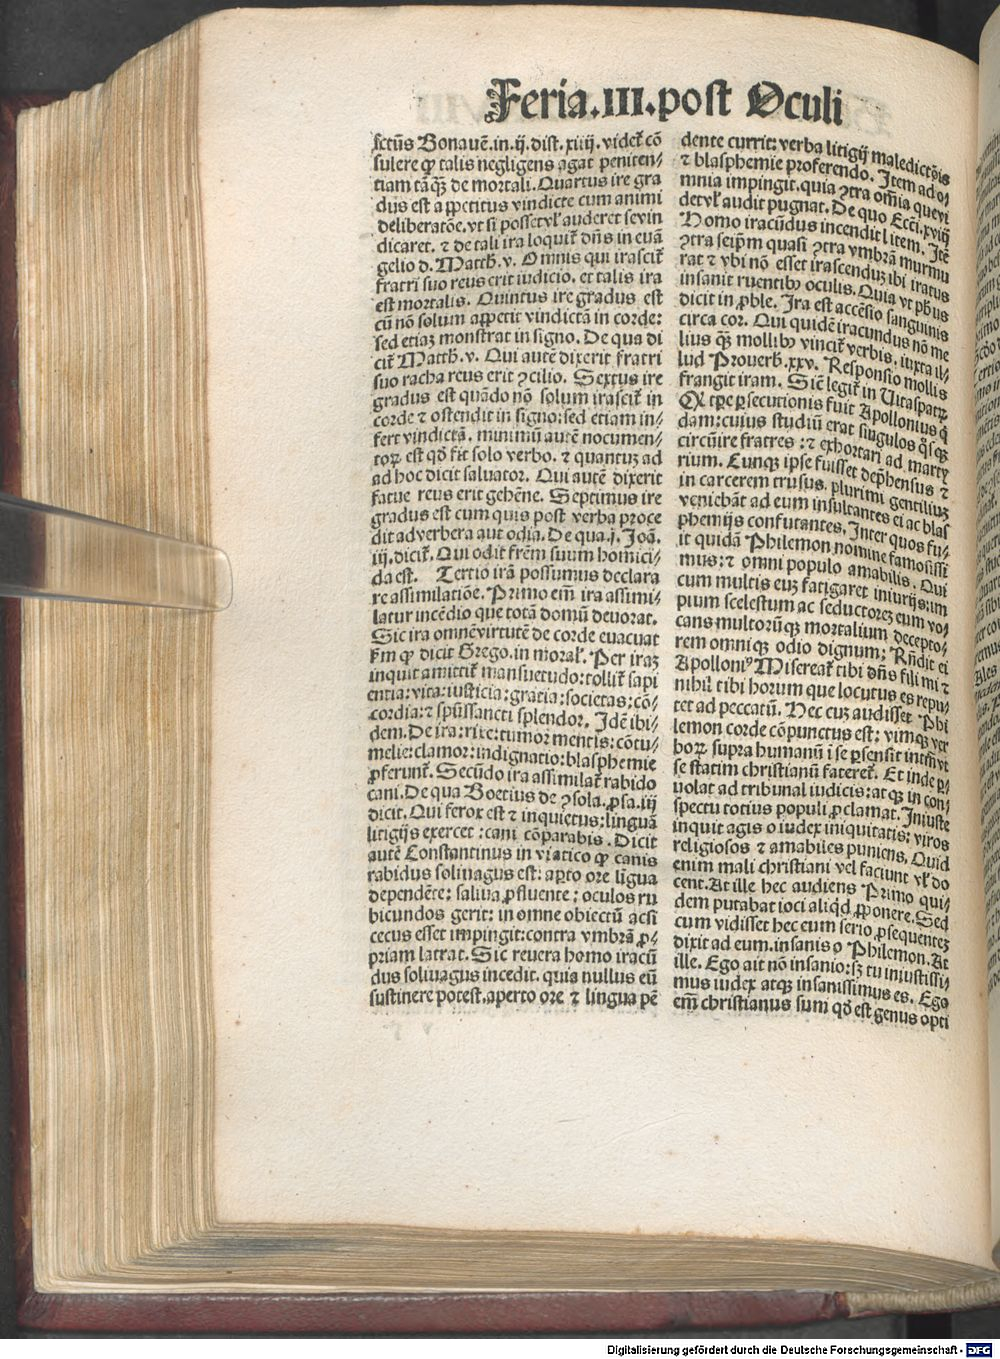 Feria.III.post Oculi
sctūs Bonauē.in.ij.dist.xiiij.videt̉ cō
sulere ꝙ talis negligens agat peniten/
tiam tāꝙ̄ de mortali. Quartus ire gra
dus est appetitus vindicte cum animi
deliberatōe. vt si posset vl̉ auderet se vin
dicaret. ⁊ de tali ira loquit̉ dn̄s in euā
gelio d. Matth.v. Omnis qui irascit̉
fratri suo reus erit iudicio. et talis ira
est mortalis. Quintus ire gradus est
cū nō solum appetit vindictā in corde:
sed etiaꝫ monstrat in signo. De qua di
cit̉ Matth.v. Qui autē dixerit fratri
suo racha reus erit ꝯcilio. Sextus ire
gradus est quādo nō solum irascit̉ in
corde ⁊ ostendit in signo: sed etiam in/
fert vindictā. minimū autē nocumen/
toꝝ est qd̄ fit solo verbo. ⁊ quantuꝫ ad
ad hoc dicit saluator. Qui autē dixerit
fatue reus erit gehēne. Septimus ire
gradus est cum quis post verba proce
dit ad verbera aut odia. De qua.j. Joā.
iij.dicit̉. Qui odit frēm suum homici/
da est. Tertio irā possumus declara
re assimilatiōe. Primo em̄ ira assimi/
latur incēdio que totā domū deuorat.
Sic ira omnē virtutē de corde euacuat
ẜm ꝙ dicit Grego.in moral̉. Per iraꝫ
inquit amittit̉ mansuetudo: tollit̉ sapi
entia: vita: iusticia: gratia: societas: cō/
cordia: ⁊ spūssancti splendor. Idē ibi/
dem. De ira: rixe: tumor mentis: cōtu/
melie: clamor: indignatio: blasphemie
ꝓferunt̉. Secūdo ira assimilat̉ rabido
cani. De qua Boetius de ꝯsola. ꝓsa.iij
dicit. Qui ferox est ⁊ inquietus: linguā
litigijs exercet: cani cōparabis. Dicit
autē Constantinus in viatico ꝙ canis
rabidus soliuagus est: aꝑto ore ligua
dependēte: saliua ꝓfluente: oculos ru
bicundos gerit: in omne obiectū acsi
cecus esset impingit: contra vmbrā ꝓ/
priam latrat. Sic reuera homo iracū
dus soliuagus incedit. quia nullus eū
sustinere potest. aperto ore ⁊ lingua pē
dente currit: verba litigij maledictōis
⁊ blasphemie proferendo. Item ad o/
mnia impingit. quia ꝯtra om̄ia que vi
det vl̉ audit pugnat. De quo Ecci.xviij
Homo iracūdus incendit litem. Itē
ꝯtra seip̄m quasi ꝯtra vmbrā murmu
rat ⁊ vbi nō esset irascenduꝫ ibi iratus
insanit ruentibꝰ oculis. Quia vt ph̄us
dicit in ꝓble. Ira est accēsio sanguinis
circa cor. Qui quidē iracundus nō me
lius ꝙ̄ mollibꝰ vincit̉ verbis, iuxta il/
lud Prouerb.xxv. Responsio mollis
frangit iram. Sic legit̉ in Vitaspatꝝ
Q̉ tꝑe ꝑsecutionis fuit Apollonius q̇
dam: cuius studiū erat singulos q̇sꝙ
circūire fratres: ⁊ exhortari ad marty
rium. Cunꝙ ipse fuisset dep̄hensus ⁊
in carcerem trusus, plurimi gentiliuꝫ
veniebāt ad eum insultantes ei ac blas
phemijs confutantes, Inter quos fu/
it quidā Philemon nomine famosissi
mus: ⁊ omni populo amabilis. Qui
cum multis euꝫ fatigaret iniurijs: im
pium scelestum ac seductoreꝫ eum vo/
cans multorūꝙ mortalium decepto/
rem omniꝙ odio dignum: Rn̄dit ei
Apolloniꝰ Misereat̉ tibi dn̄s fili mi ⁊
nihil tibi horum que locutus es repu/
tet ad peccatū. Hec cuꝫ audisset Phi
lemon corde cōpunctus est: vimꝙ ver
boꝝ supra humanū i se ꝑsensit intm̄ vt
se statim christianū fateret̉. Et inde ꝓ/
uolat ad tribunal iudicis: atꝙ in con/
spectu totius populi ꝓclamat. Iniuste
inquit agis o iudex iniquitatis: viros
religiosos ⁊ amabiles puniens, Quid
enim mali christiani vel faciunt vl̉ do
cent. At ille hec audiens Primo qui/
dem putabat ioci aliqd ꝓponere. Sed
cum vidisset hec eum serio ꝓsequenteꝫ
dixit ad eum. insanis o Philemon. At
ille. Ego ait nō insanio: sꝫ tu iniustissi/
mus iudex atꝙ insanissimus es. Ego
em̄ christianus sum qd̄ est genus opti
Digitalisierung gefördert durch die Deutsche Forschungsgemeinschaft - DFG